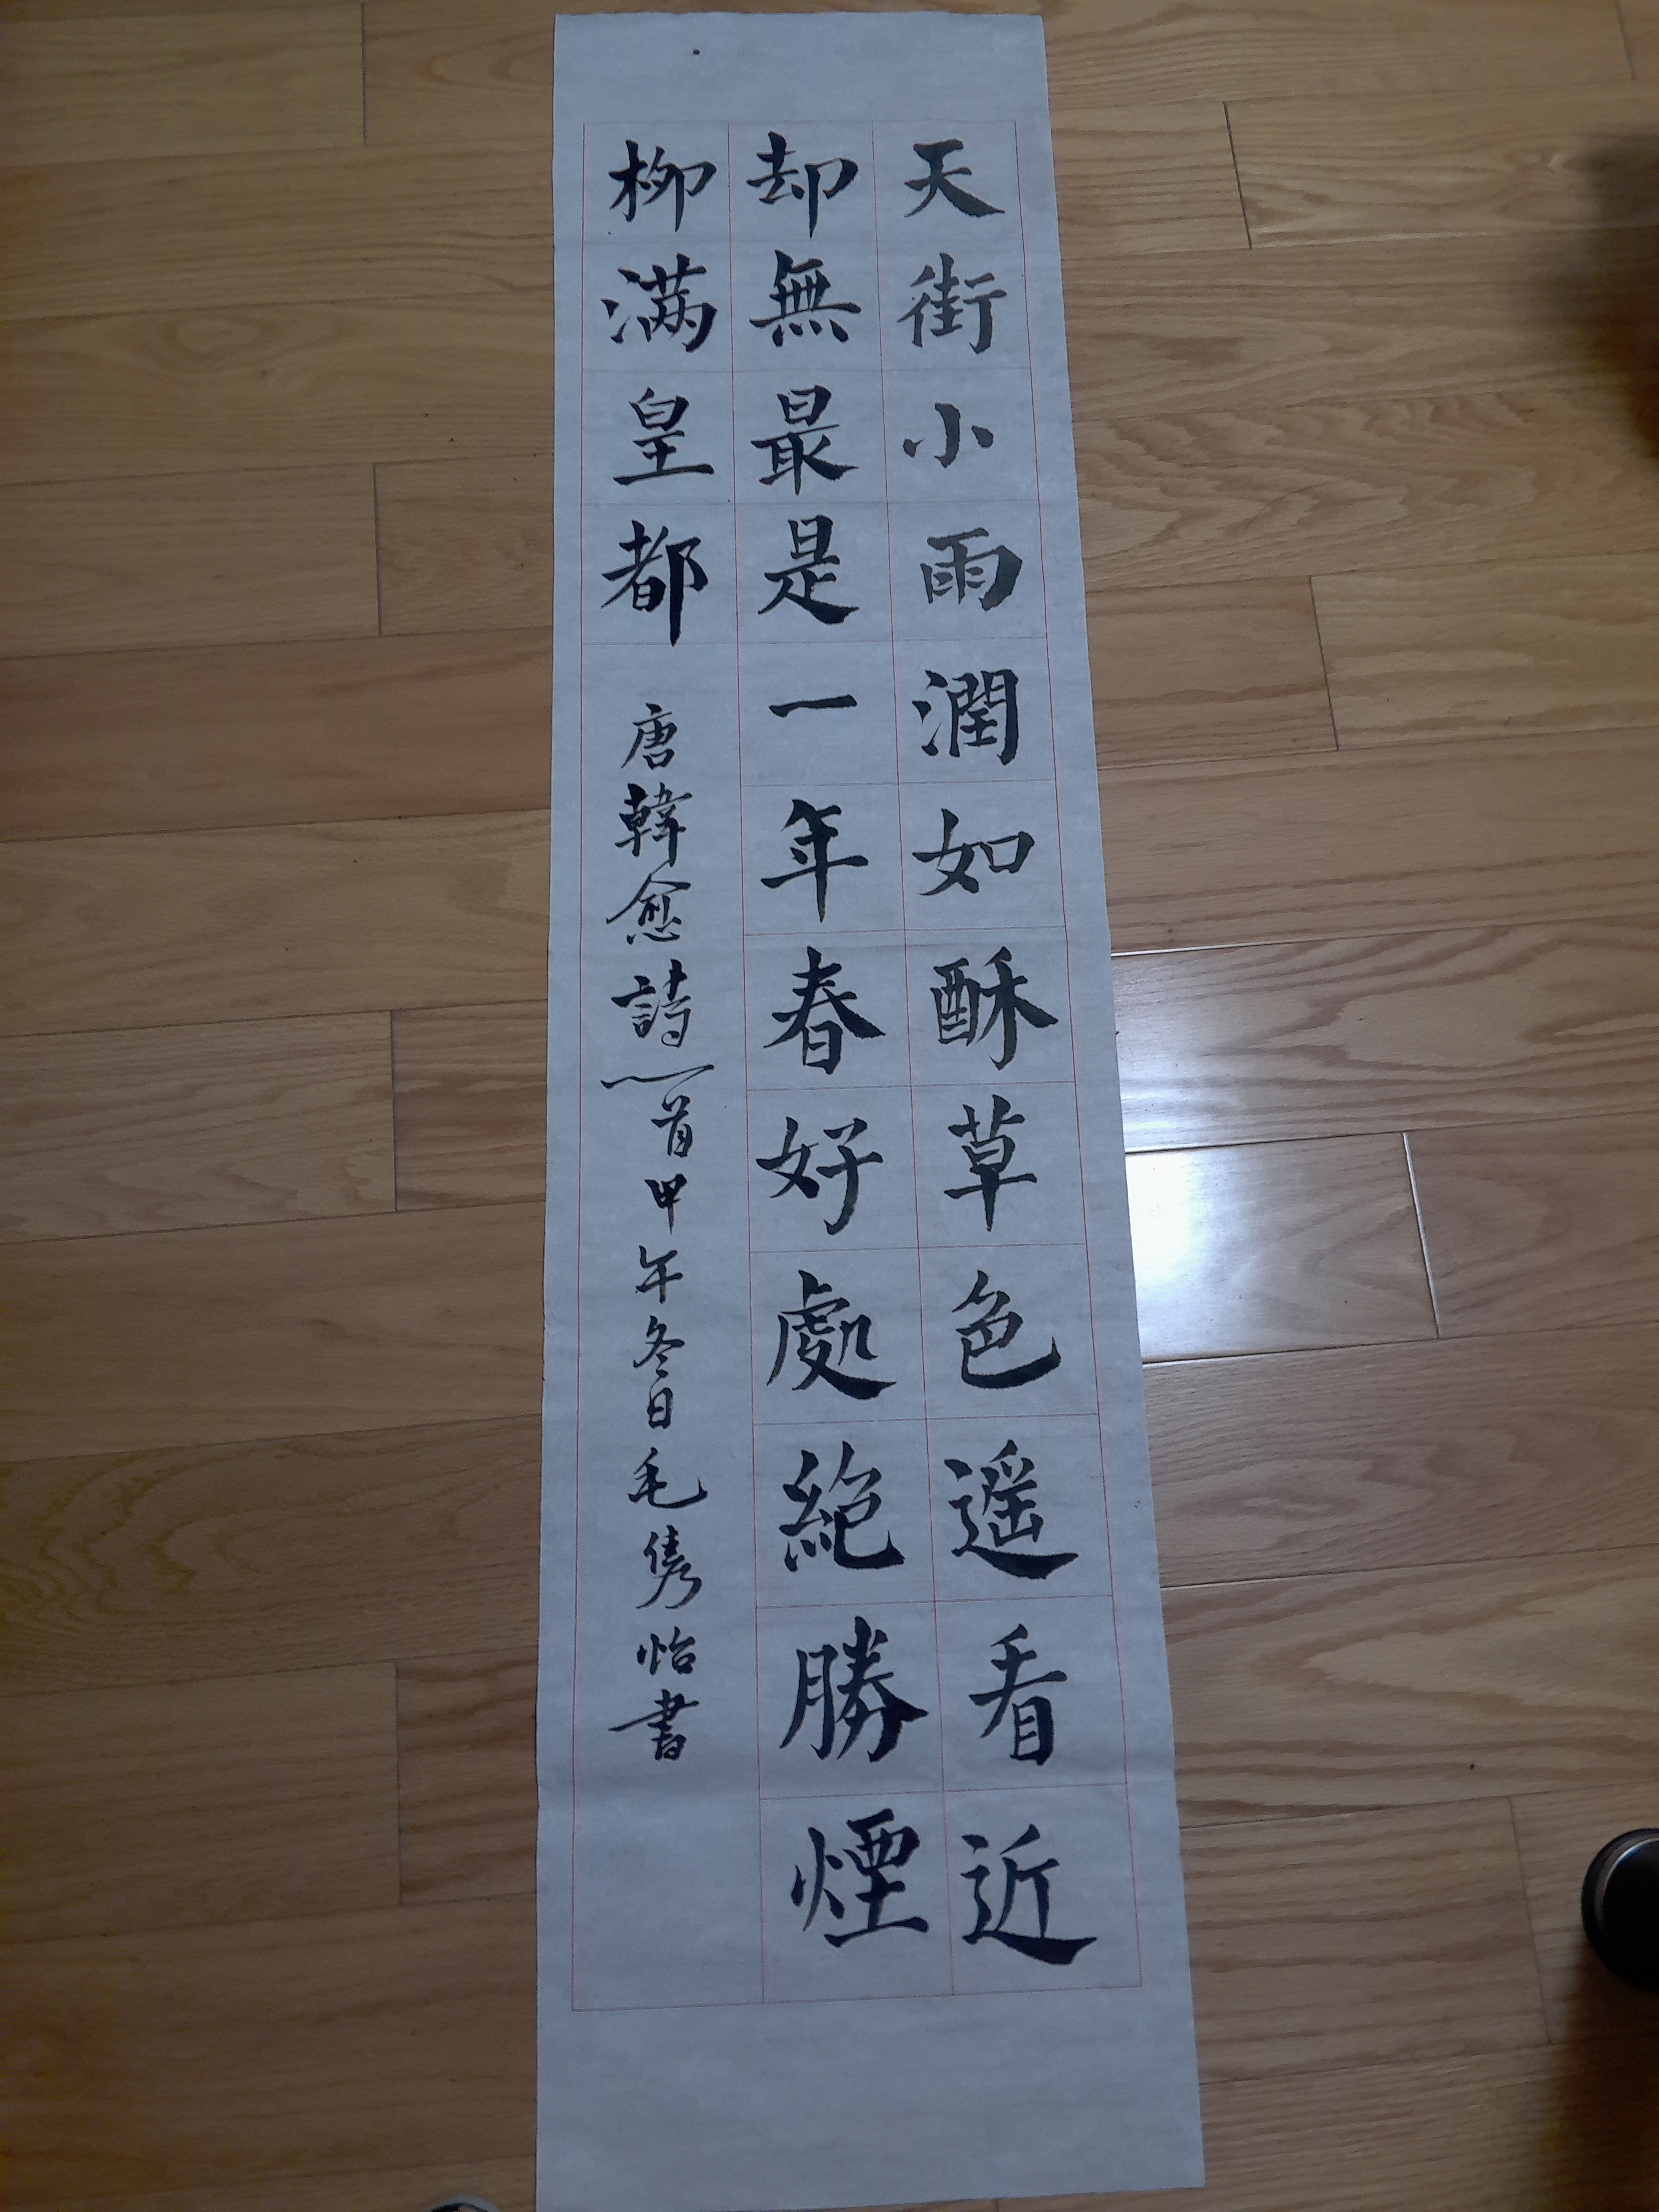 天街小雨潤如酥草色遥看近
却無最是一年春好處絶勝煙
柳满皇都
唐韓愈詩一首甲午冬日毛雋怡書